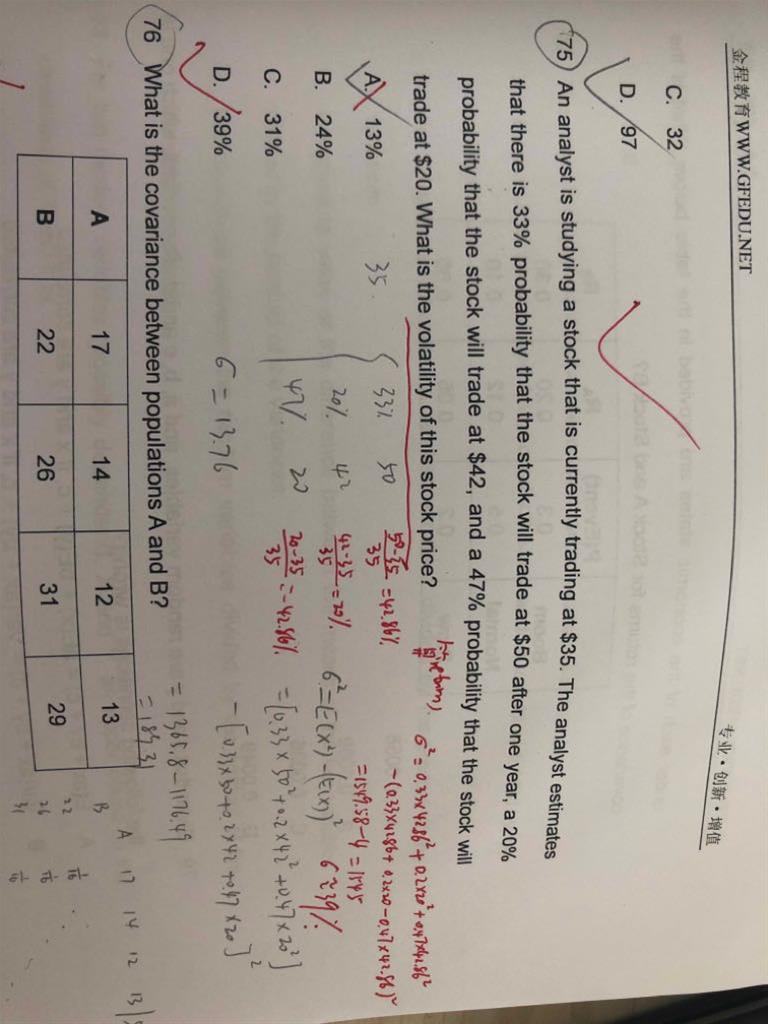 金程教育 WWW.GFEDU.NET 专业·创新·增值
C. 32
D. 97
75 An analyst is studying a stock that is currently trading at $35. The analyst estimates
that there is 33% probability that the stock will trade at $50 after one year, a 20%
probability that the stock will trade at $42, and a 47% probability that the stock will
trade at $20. What is the volatility of this stock price?
A. 13%
B. 24%
C. 31%
D. 39%
35
33% 50
20% 42
47% 20
σ = 13.76
50-35/35 = 42.86%
42-35/35 = 20%
20-35/35 = -42.86%
σ² = 0.33×42.86² + 0.2×20² + 0.47×42.86²
-(0.33×42.86 + 0.2×20 - 0.47×42.86)²
= 1549.58 - 4 = 1545
σ ≈ 39%
σ² = E(X²) - (E(X))²
= [0.33 × 50² + 0.2 × 42² + 0.47 × 20²]
- [0.33×50 + 0.2×42 + 0.47×20]²
= 1365.8 - 1176.49
= 189.31
76 What is the covariance between populations A and B?
A 17 14 12 13
B 22 26 31 29
A 17 14 12 13
B
22 1/16
26 1/16
31 1/16